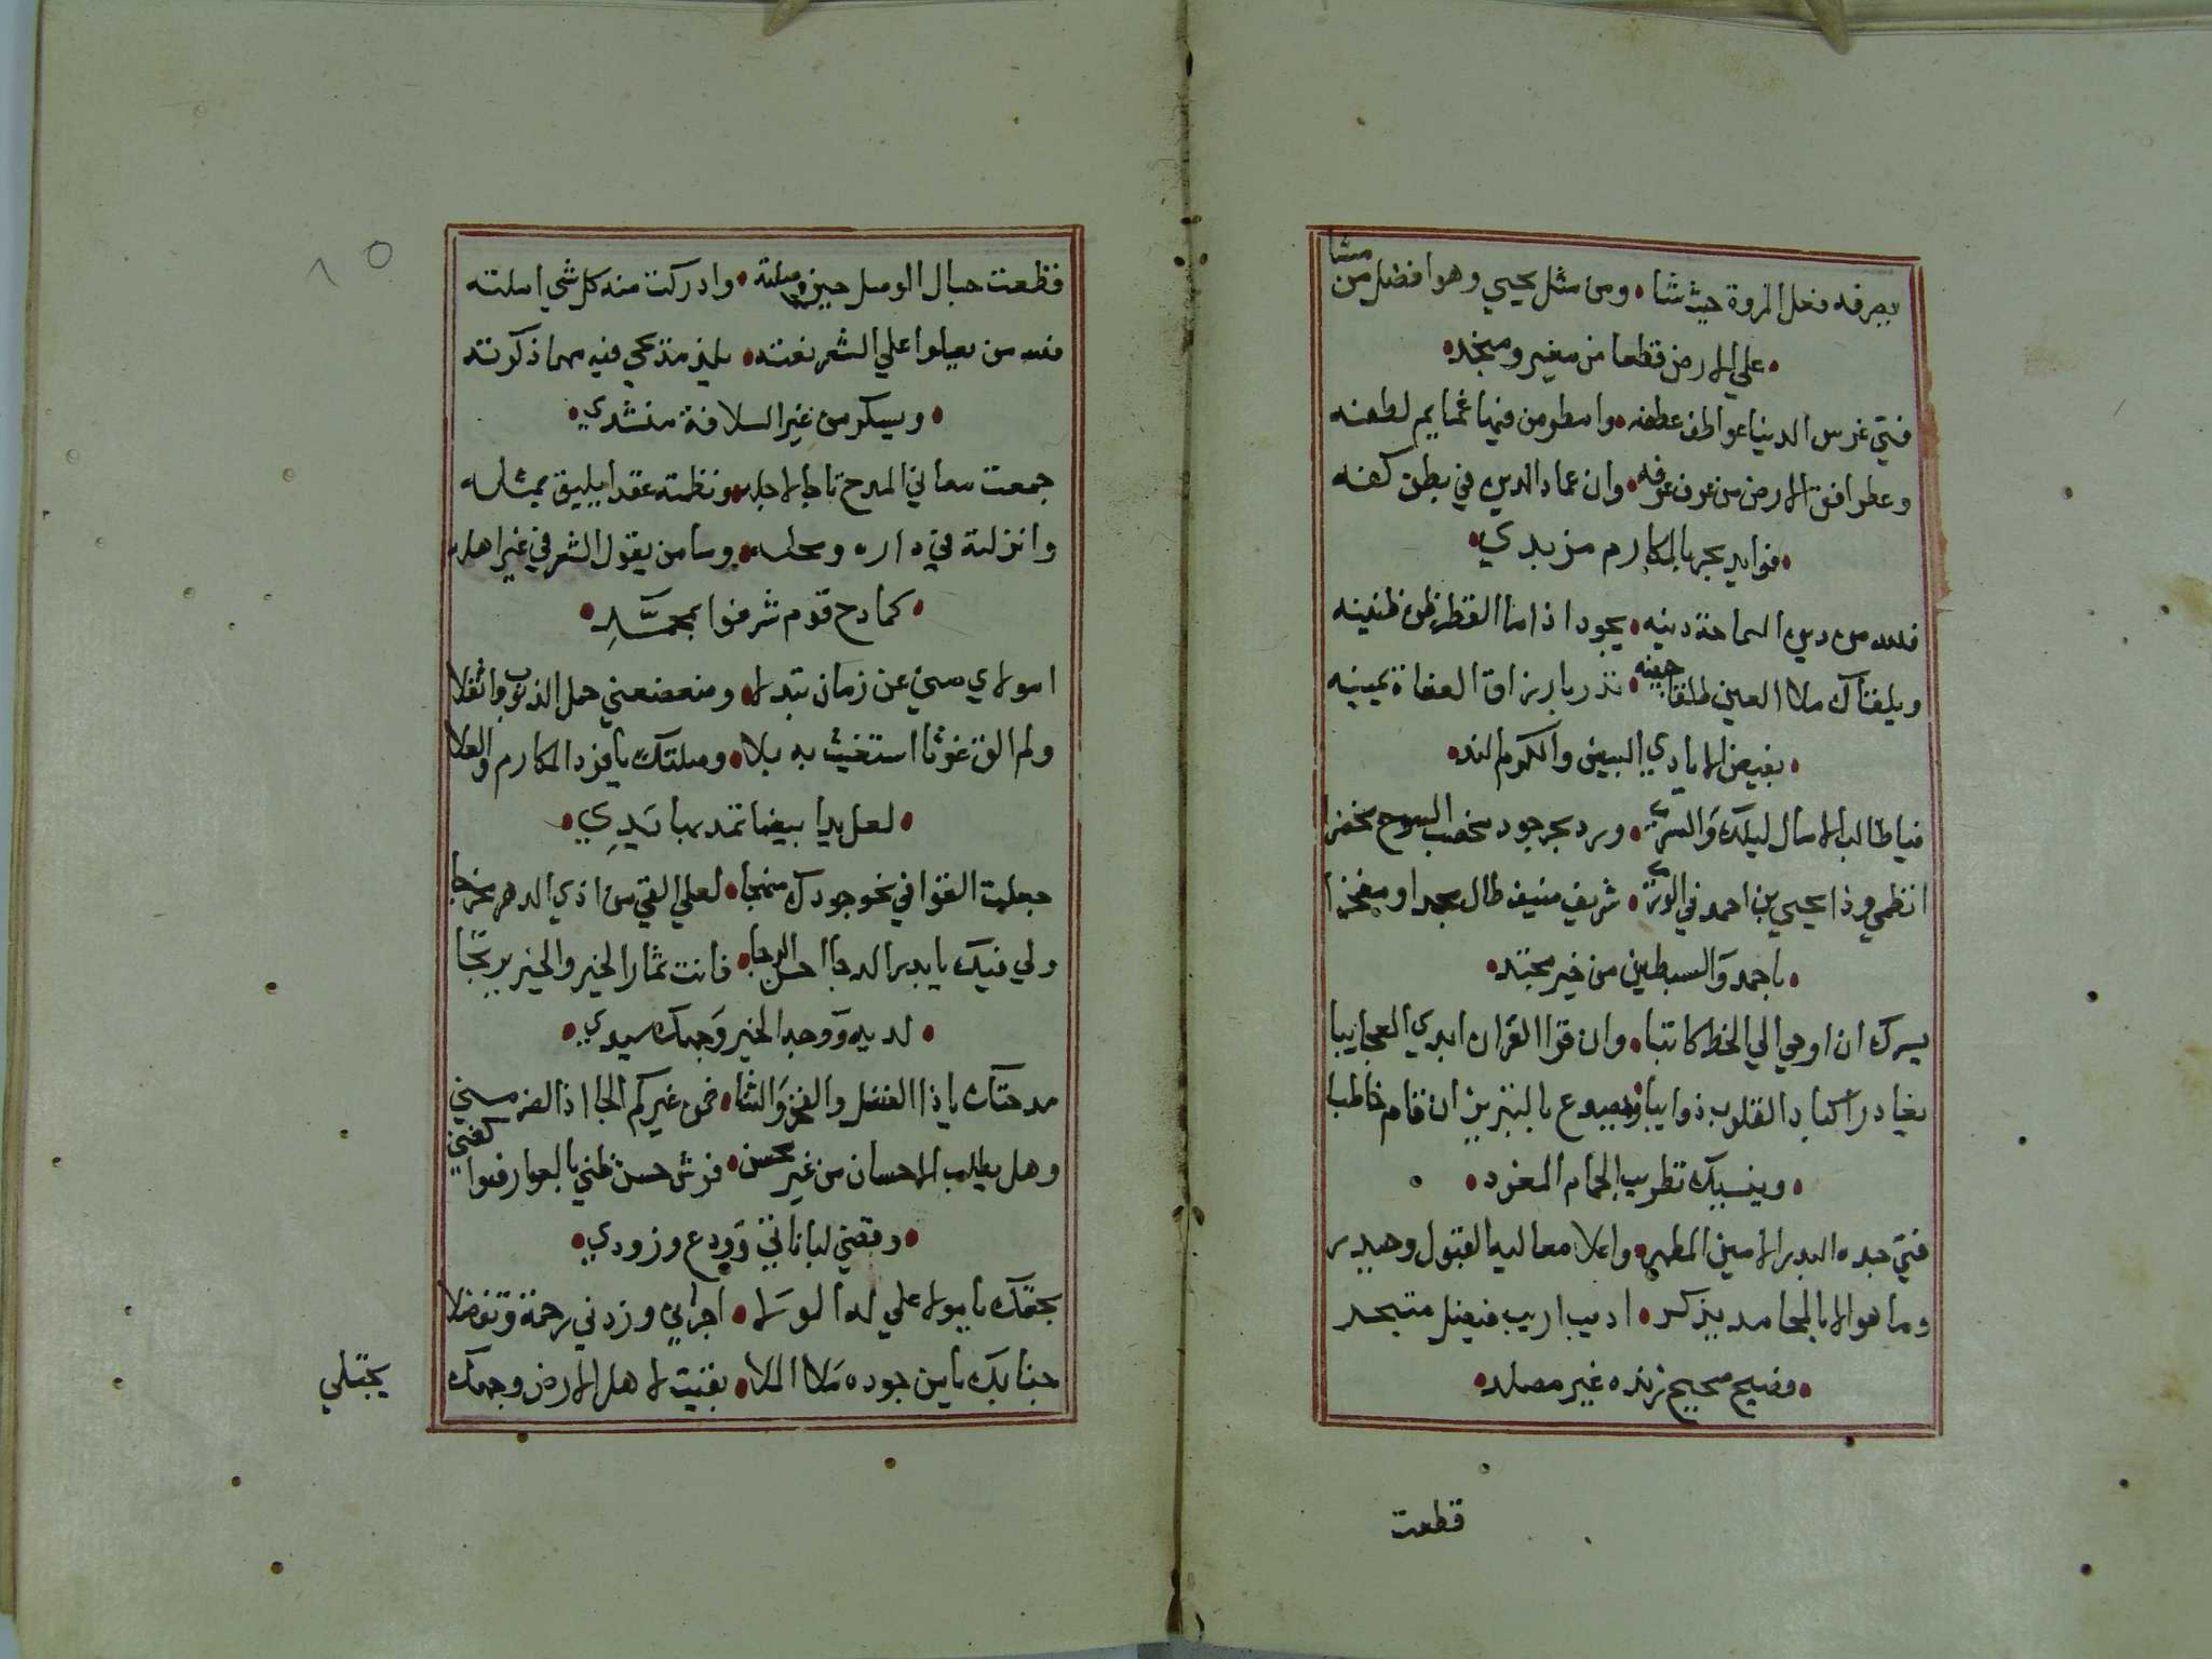 يصرفه فعل المروة حيث شا • ومن مثل يحيي وهو افضل من مشا
• علي الارض قطعا من مغير ومنجد •
فتي غرس الدنيا عواطف عطفه • وامطر من فيها غمايم لطفه
وعطر افق الارض من عرف عرفه • وان عماد الدين في بطن كفه
• فوايد بحر بالمكارم مزبدي •
فلله من دين السماحة دينه • يجود اذا ما القطر ظن ظنينه
ويلقاك ملا العين طلقا جبينه • تدر بارزاق العفاة يمينه
• بفيض الايادي البيض والكرم الند •
فيا طالب الامال ليلك والسري • ورد بحر جود مخصب السوح مخضرا
انظمي وذا يحيي بن احمد في الوري • شريف منيف طال مجدا ومفخرا
• باحمد والسبطين من خير محتد •
يسرك ان اوحي الي الخط كاتبا • وان قرا القران ابدي العجايبا
يغادر اكباد القلوب ذوايبا • ويصدع بالتبريز ان قام خاطبا
• وينسيك تطريب الحمام المغرد •
فتي جده البدر الامين المطهر • واعلا معاليه البتول وحيدر
وما هو الا بالمحامد يذكر • اديب اريب فيصل متبحر
• فصيح صحيح زنده غير مصلد •
قطعت
قطعت حبال الوصل حين وصلته • وادركت منه كل شي املته
فلله من يعلوا علي الشعر نعته • يلذ مديحي فيه مهما ذكرته
• ويسكر من غير السلافة منشدي •
جمعت معاني المدح تاجا لاجله • ونظمته عقدا يليق بمثله
وانزلته في داره ومحله • وما من يقول الشعر في غير اهله
• كمادح قوم شرفوا بمحمد •
امولاي مسني عن زمان تبدلا • وضعضعني حمل الذنوب واثقلا
ولم الق غوثا استغيث به بلا • وصلتك يا فرد المكارم والعلا
• لعل يدا بيضا تمد بها يدي •
جعلت القوافي نحو جودك منهجا • لعلي القي من اذي الدهر مخرجا
ولي فيك يا بدر الدجا احسن الرجا • فانت ثمار الخير والخير يرتجا
• لديه ووجه الخير وجهك سيدي •
مدحتك يا ذا الفضل والفخر والثنا • فمن غيركم الجا اذا الضر مسني
وهل يطلب الاحسان من غير محسن • فرش حسن ظني بالعوارف واكفني
• وقضي لباناتي وودع وزودي •
بحقك يا مولا علي له الولا • اجرني وزدني رحمة وتفضلا
جنابك يا من جوده ملا الملا • بقيت لاهل الارض وجهك
يجتلي